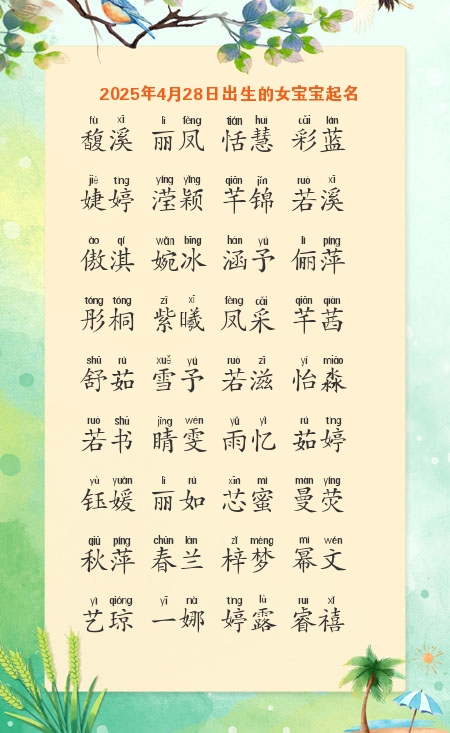 2025年4月28日出生的女宝宝起名
fù xī lì fèng tián huì cǎi lán
馥溪 丽凤 恬慧 彩蓝
jié tíng yíng yǐng qiān jǐn ruò xī
婕婷 滢颖 芊锦 若溪
ào qí wǎn bīng hán yǔ lì píng
傲淇 婉冰 涵予 俪萍
tóng tóng zǐ xī fèng cǎi qiān qiàn
彤桐 紫曦 凤采 芊茜
shū rú xuě yǔ ruò zī yí miǎo
舒茹 雪予 若滋 怡淼
ruò shū jīng wén yǔ yì rú tíng
若书 晴雯 雨忆 茹婷
yù yuàn lì rú xīn mì màn yíng
钰媛 丽如 芯蜜 曼荧
qiū píng chūn lán zǐ mèng mì wén
秋萍 春兰 梓梦 幂文
yì qióng yī nà tíng lù ruì xǐ
艺琼 一娜 婷露 睿禧